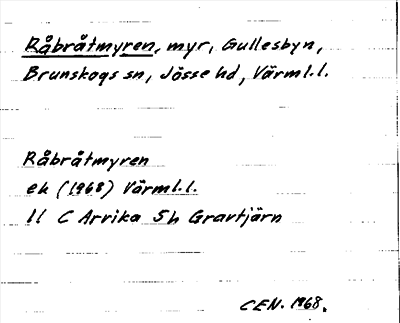 Råbråtmyren, myr, Gullesbyn,
Brunskogs sn, Jösse hd, Värml.l.
Råbråtmyren
ek (1968) Värml.l.
11 C Arvika 5h Gravtjärn
CEN. 1968.